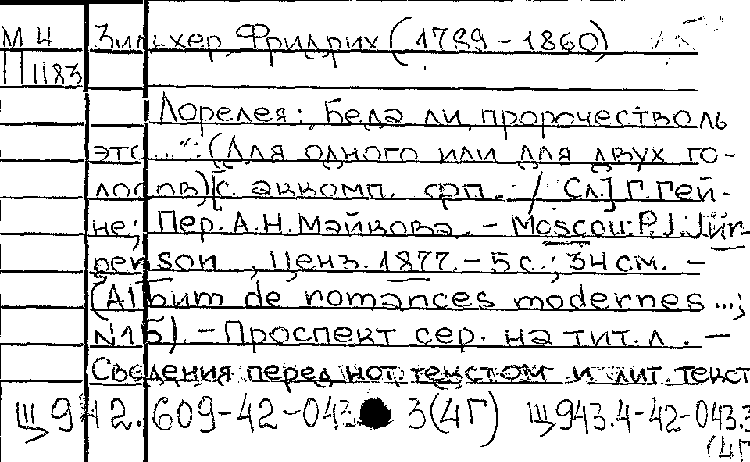 М 4 Зильхер, Фридрих (1789-1860)
П 1183
Лорелея: „Беда ли, пророчество ль
это...“: (Для одного или для двух го-
лосов) [с аккомп. фп. / Сл.] Г. Гей-
не; Пер. А.Н. Майкова. - Moscou: P.J. Jür-
genson, Ценз. 1877. - 5 с.; 34 см. -
(Album de romances modernes ...;
N15). - Проспект сер. на тит. л. -
Сведения перед нот. текстом и лит. текст
Щ942.609-42-043. 3(4Г) Щ943.4-42-043.3
(4Г